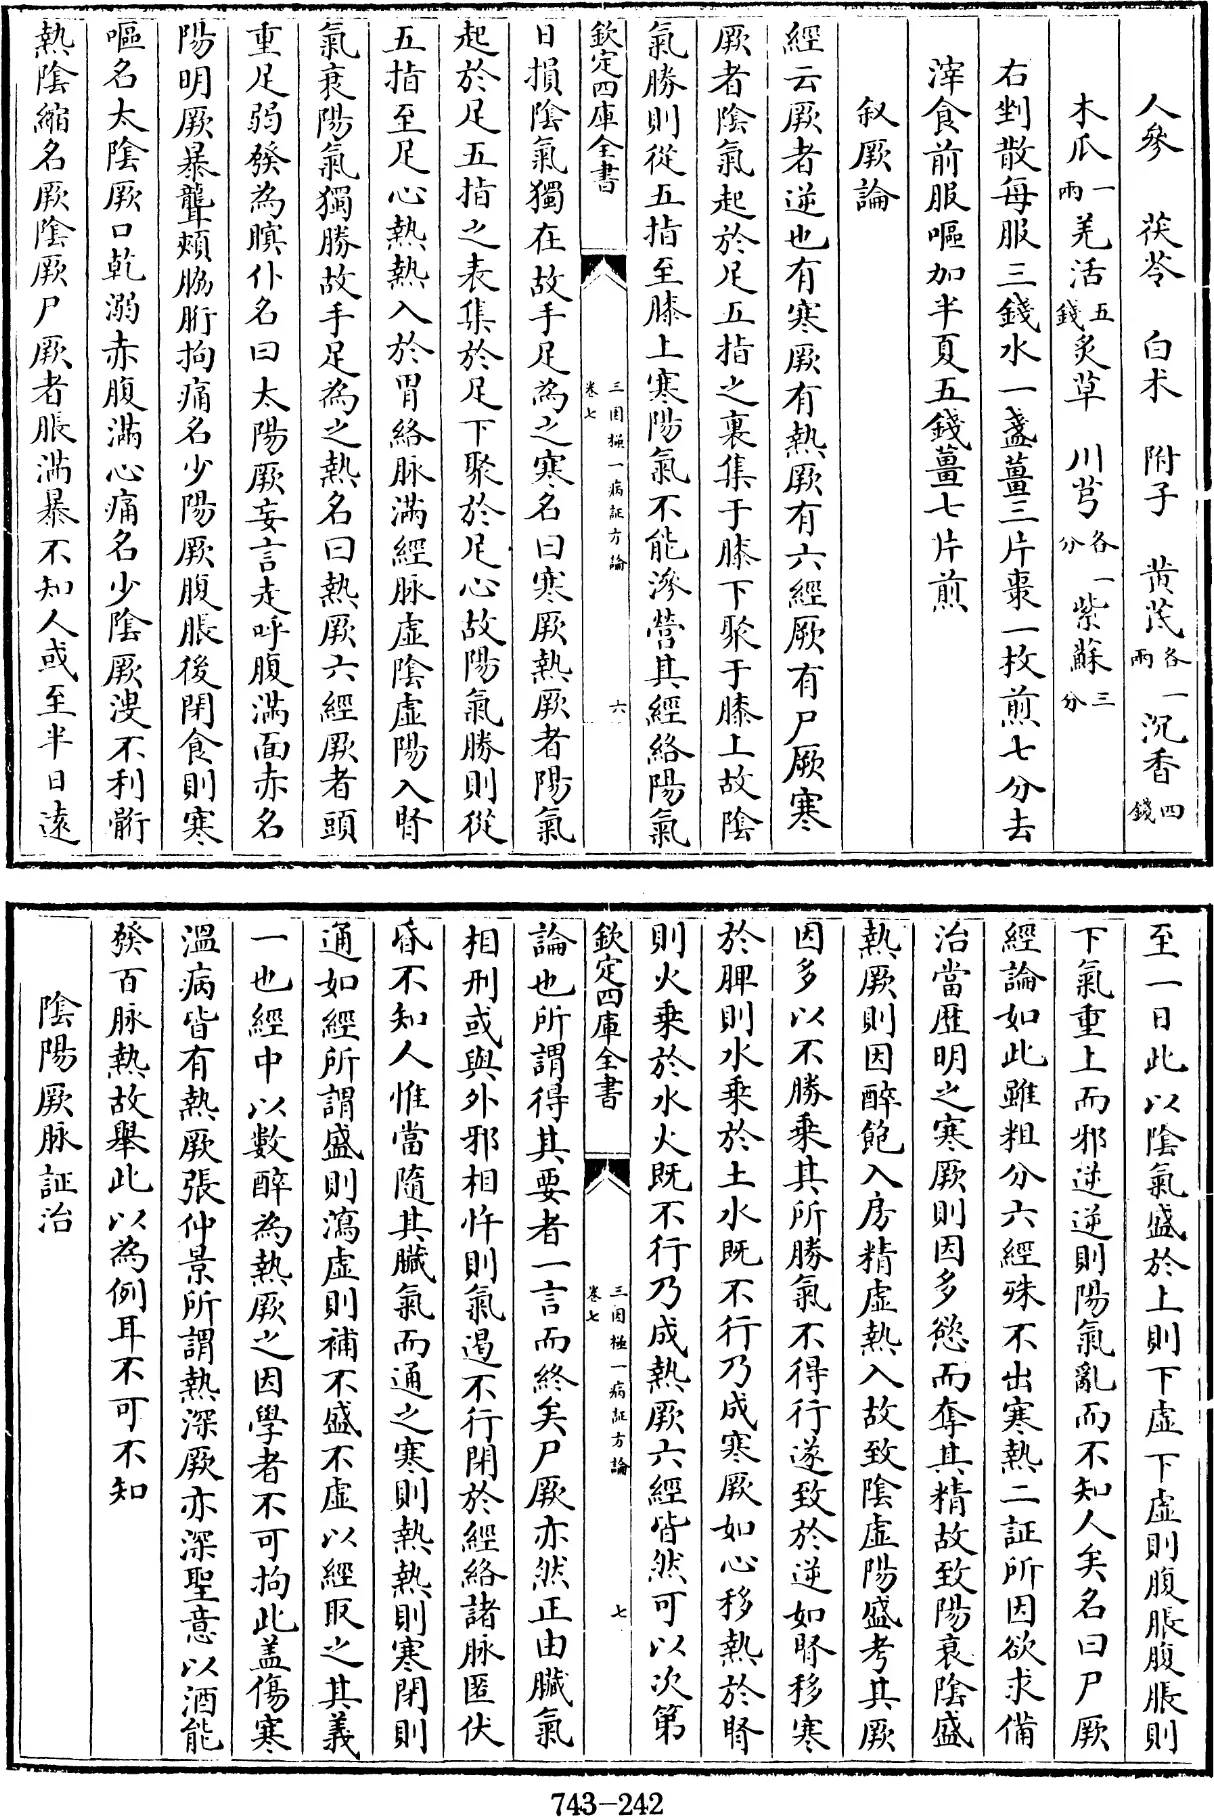 人參　茯苓　白术　附子　黄茋各一兩沉香四錢
木瓜一兩羌活五錢炙草　川芎各一分紫蘇三分
右剉散每服三錢水一盞薑三片棗一枚煎七分去
滓食前服嘔加半夏五錢薑七片煎
叙厥論
經云厥者逆也有寒厥有熱厥有六經厥有尸厥寒
厥者陰氣起於足五指之裏集于膝下聚于膝上故陰
氣勝則從五指至膝上寒陽氣不能滲營其經絡陽氣
欽定四庫全書　三因極一病証方論　卷七　六
日損陰氣獨在故手足為之寒名曰寒厥熱厥者陽氣
起於足五指之表集於足下聚於足心故陽氣勝則從
五指至足心熱熱入於胃絡脉滿經脉虛陰虛陽入腎
氣衰陽氣獨勝故手足為之熱名曰熱厥六經厥者頭
重足弱發為瞑仆名曰太陽厥妄言走呼腹滿面赤名
陽明厥暴聾頰脇胻拘痛名少陽厥腹脹後閉食則寒
嘔名太陰厥口乾溺赤腹滿心痛名少陰厥溲不利䯒
熱陰縮名厥陰厥尸厥者脹滿暴不知人或至半日遠
至一日此以陰氣盛於上則下虛下虛則腹脹腹脹則
下氣重上而邪逆逆則陽氣亂而不知人矣名曰尸厥
經論如此雖粗分六經殊不出寒熱二証所因欲求備
治當歴明之寒厥則因多慾而奪其精故致陽衰陰盛
熱厥則因醉飽入房精虛熱入故致陰虛陽盛考其厥
因多以不勝乘其所勝氣不得行遂致於逆如腎移寒
於脾則水乘於土水既不行乃成寒厥如心移熱於腎
則火乘於水火既不行乃成熱厥六經皆然可以次第
欽定四庫全書　三因極一病証方論　卷七　七
論也所謂得其要者一言而終矣尸厥亦然正由臟氣
相刑或與外邪相忤則氣遏不行閉於經絡諸脉匿伏
昏不知人惟當隨其臟氣而通之寒則熱熱則寒閉則
通如經所謂盛則瀉虛則補不盛不虛以經取之其義
一也經中以數醉為熱厥之因學者不可拘此盖傷寒
溫病皆有熱厥張仲景所謂熱深厥亦深聖意以酒能
發百脉熱故舉此以為例耳不可不知
陰陽厥脉証治
743-242